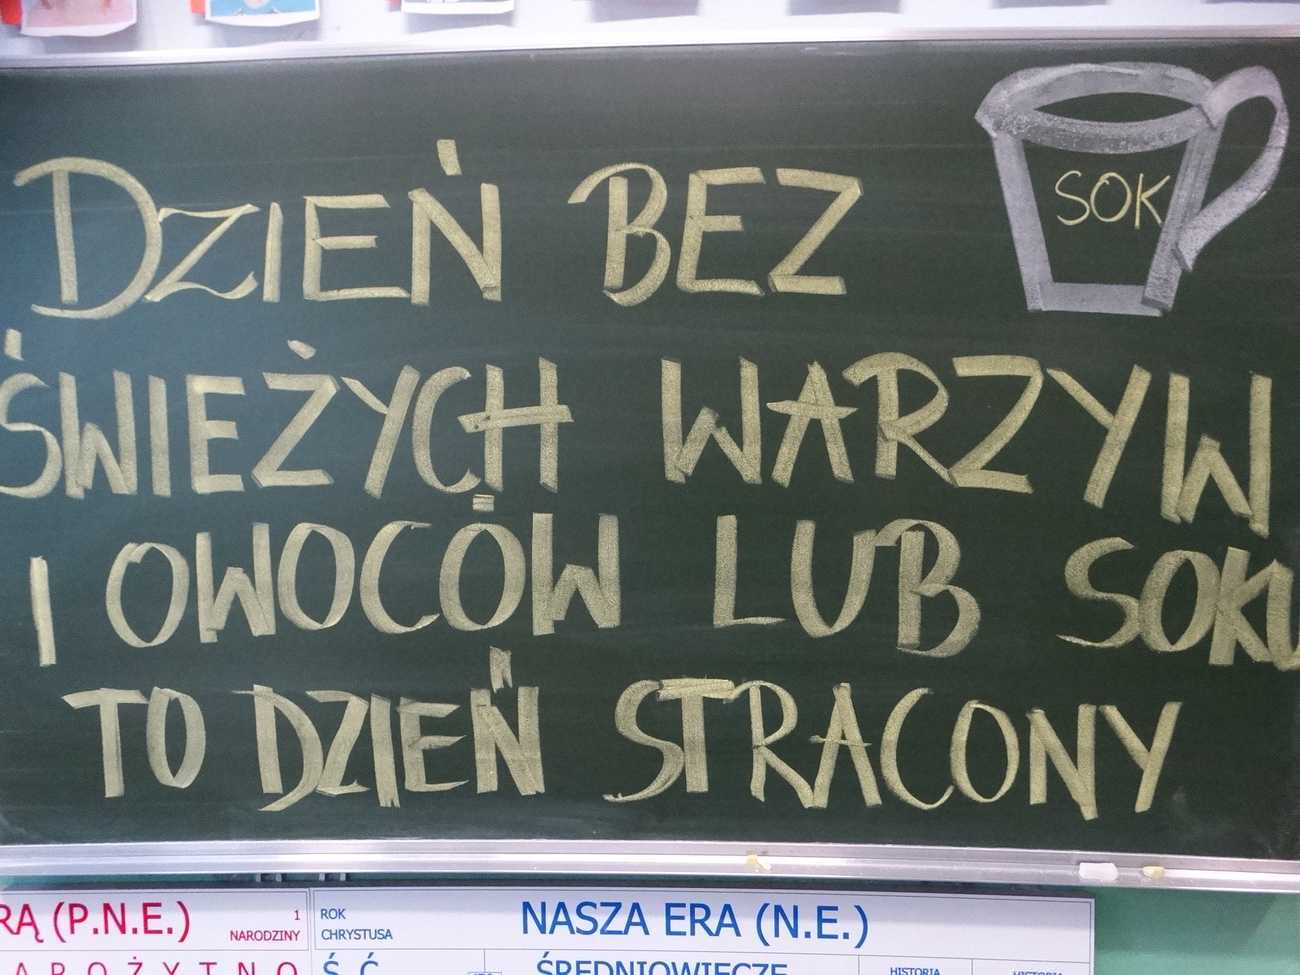 DZIEŃ BEZ
SOK
ŚWIEŻYCH WARZYW
I OWOCÓW LUB SOKU
TO DZIEŃ STRACONY
RĄ (P.N.E.)
1
NARODZINY
ROK
CHRYSTUSA
NASZA ERA (N.E.)
ŚREDNIOWIECZE
HISTORIA
HISTORIA